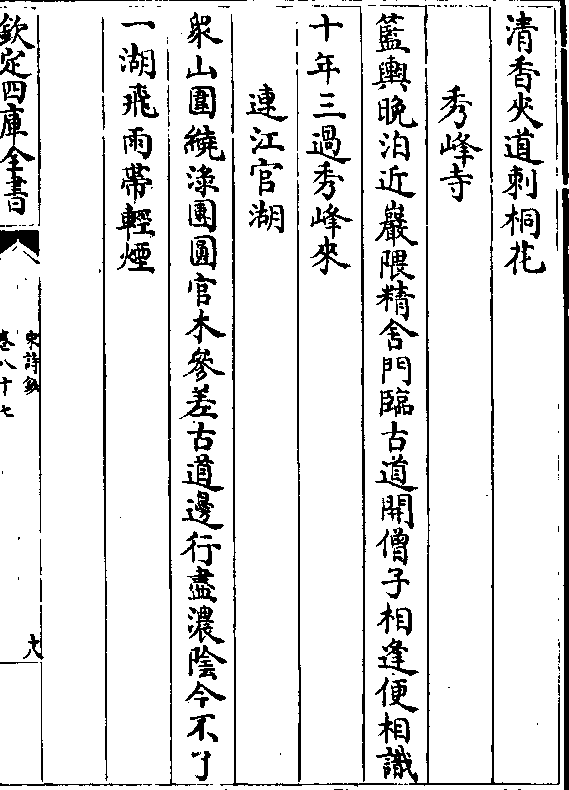 清香夾道刺桐花
秀峰寺
籃輿晩泊近巖隈精舍門臨古道開僧子相逢便相識
十年三過秀峰來
連江官湖
衆山圍繞淥團圓官木參差古道邊行盡濃陰今不了
一湖飛雨帶輕煙
欽定四庫全書
宋詩鈔
卷八十七
十八